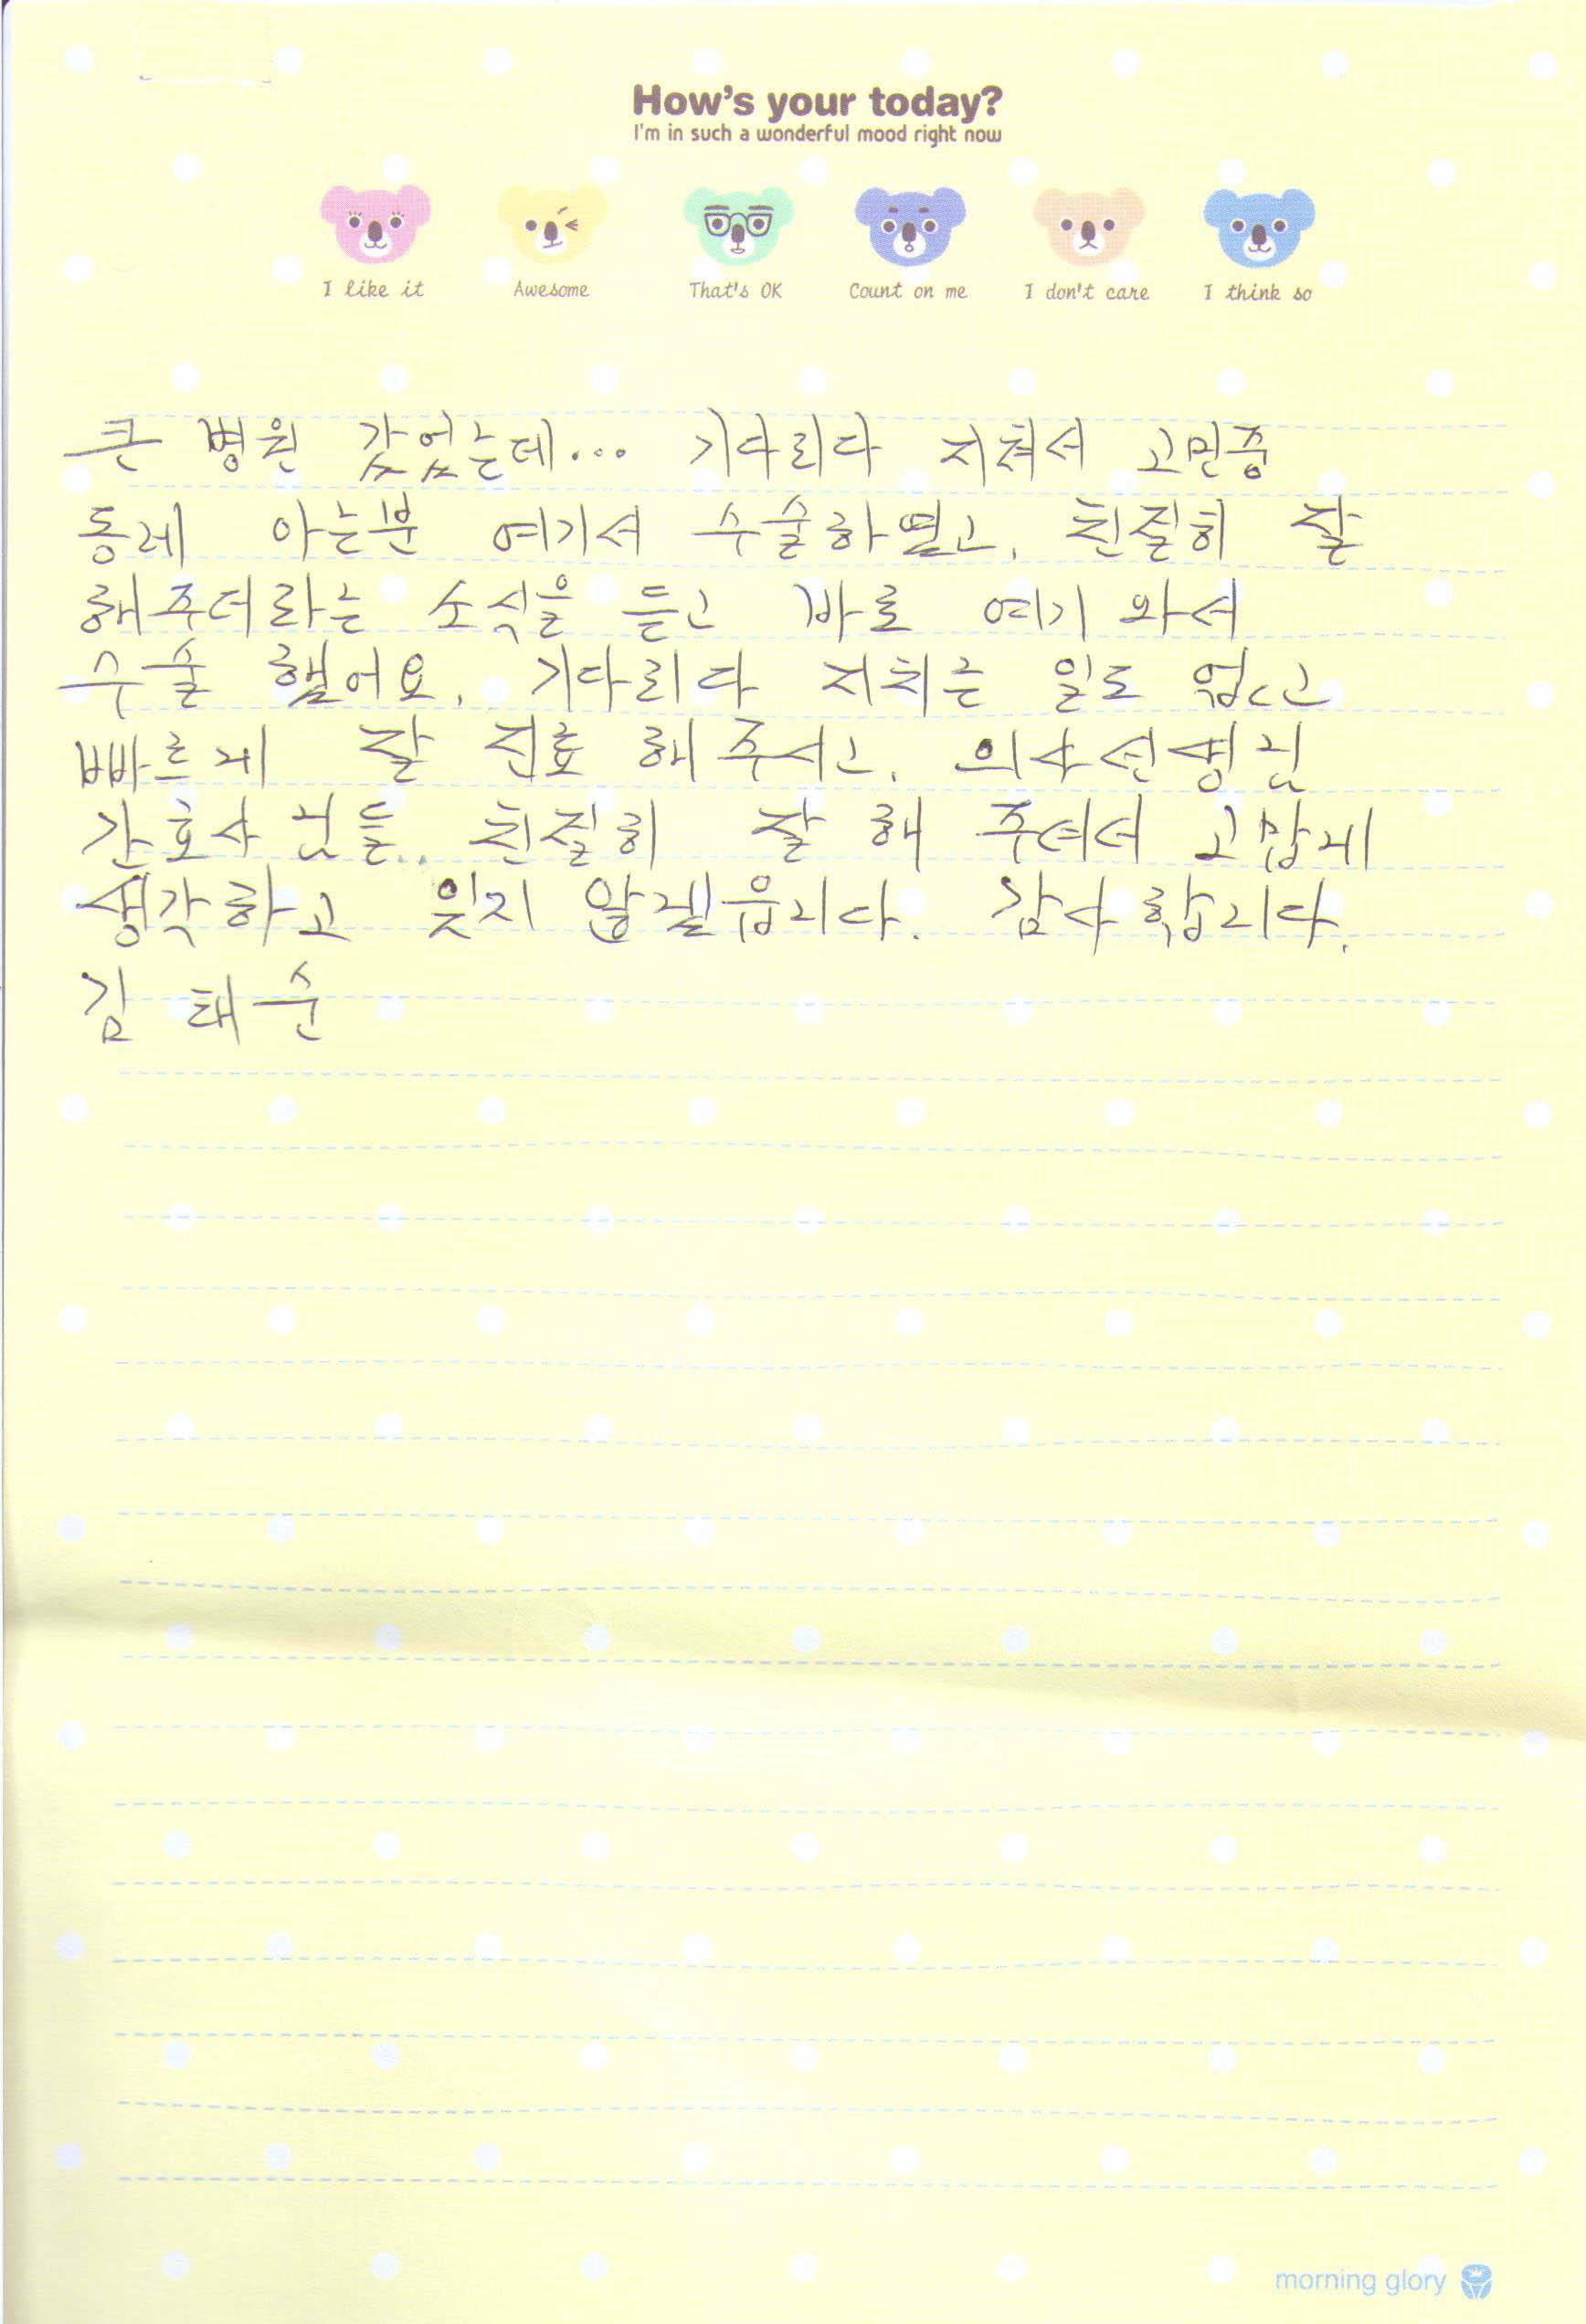 How's your today?
I'm in such a wonderful mood right now
I like it Awesome That's OK Count on me I don't care I think so
큰 병원 갔었는데... 기다리다 지쳐서 고민중
동네 아는분 여기서 수술하였고, 친절히 잘
해주더라는 소식을 듣고 바로 여기 와서
수술 했어요. 기다리다 지치는 일도 없고
빠르게 잘 진료 해 주시고, 의사선생님
간호사 님들.. 친절히 잘 해 주셔서 고맙게
생각하고 잊지 않겠읍니다. 감사합니다.
김 태순
morning glory